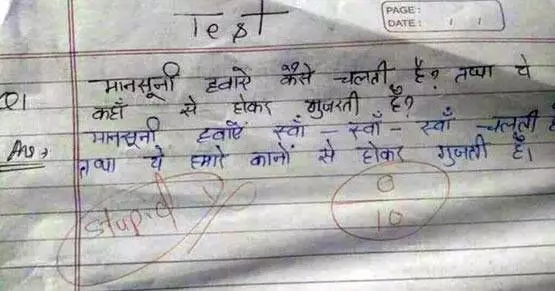 Test
PAGE:
DATE: / /
Q1 मानसूनी हवारे कैसे चलती है? तथा ये
कहाँ से होकर गुजरती है?
Ans → मानसूनी हवाएँ स्वाँ - स्वाँ - स्वाँ चलती है
तथा ये हमारे कानों से होकर गुजती है।
Stupid
0
10